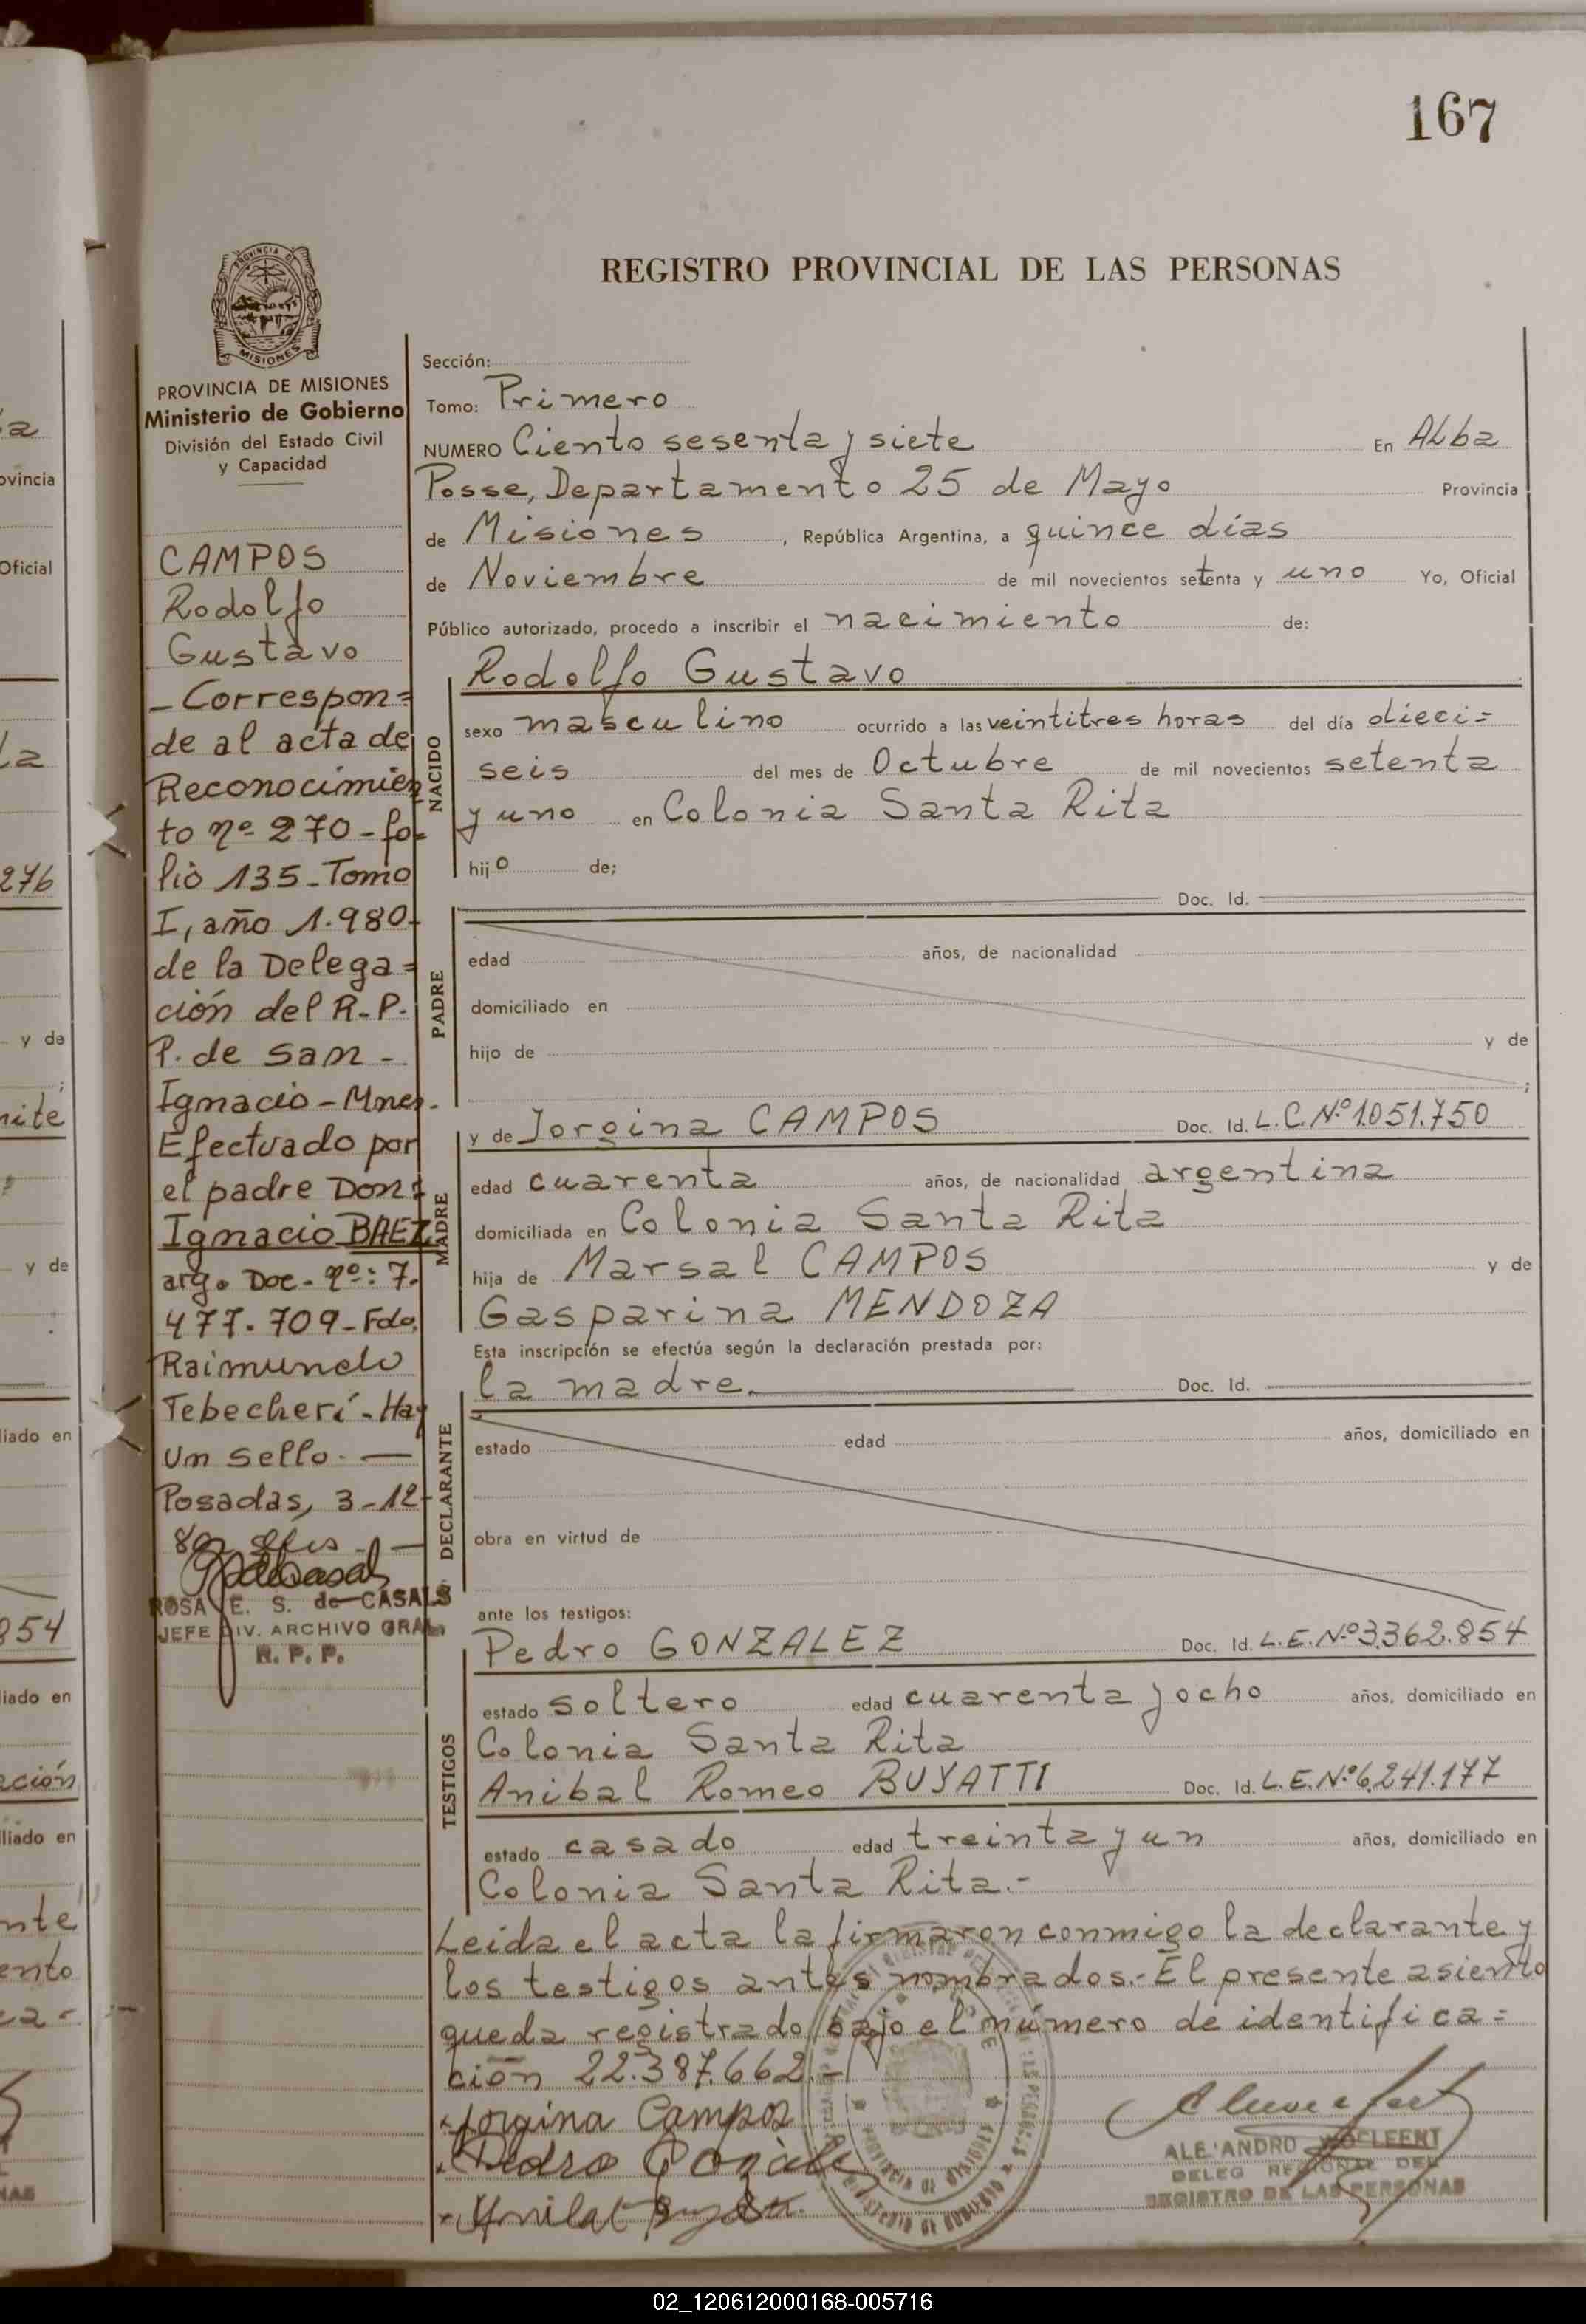 167
REGISTRO PROVINCIAL DE LAS PERSONAS
PROVINCIA DE MISIONES
Ministerio de Gobierno
División del Estado Civil
y Capacidad
CAMPOS
Rodolfo
Gustavo
- Correspon=
de al acta de
Reconocimien
to nº 270 - fo=
lio 135 - Tomo
I, año 1.980-
de la Delega=
ción del R.P.
P. de San -
Ignacio - Mnes.
Efectuado por
el padre Don:
Ignacio BAEZ
arg. Doc. nº: 7.
477.709 - Fdo.
Raimundo
Tebecheri - Hay
un sello. —
Posadas, 3-12-
ROSA E. S. de CASALS
JEFE DIV. ARCHIVO GRAL.
R. P. P.
Sección:
Tomo: Primero
NUMERO Ciento sesenta y siete En Alba
Posse, Departamento 25 de Mayo Provincia
de Misiones, República Argentina, a quince días
de Noviembre de mil novecientos setenta y uno Yo, Oficial
Público autorizado, procedo a inscribir el nacimiento de:
Rodolfo Gustavo
NACIDO
sexo masculino ocurrido a las veintitres horas del día dieci=
seis del mes de Octubre de mil novecientos setenta
y uno en Colonia Santa Rita
hijo de;
Doc. Id.
PADRE
edad años, de nacionalidad
domiciliado en
hijo de y de
;
MADRE
y de Jorgina CAMPOS Doc. Id. L.C.Nº1.051.750
edad cuarenta años, de nacionalidad argentina
domiciliada en Colonia Santa Rita
hija de Marsal CAMPOS y de
Gasparina MENDOZA
Esta inscripción se efectúa según la declaración prestada por:
la madre. Doc. Id.
DECLARANTE
estado edad años, domiciliado en
obra en virtud de
ante los testigos:
TESTIGOS
Pedro GONZALEZ Doc. Id. L.E.Nº3.362.854
estado soltero edad cuarenta y ocho años, domiciliado en
Colonia Santa Rita
Anibal Romeo BUYATTI Doc. Id. L.E.Nº6.241.177
estado casado edad treinta y un años, domiciliado en
Colonia Santa Rita.-
Leida el acta la firmaron conmigo la declarante y
los testigos antes nombrados.- El presente asiento
queda registrado bajo el número de identifica=
ción 22.387.662.-
Jorgina Campos
Pedro Gonzalez
ALEJANDRO
DELEG. REGIONAL DEL
REGISTRO DE LAS PERSONAS
02_120612000168-005716